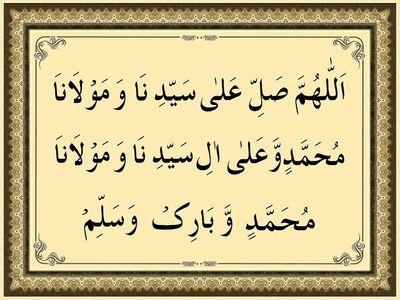 اَللّٰهُمَّ صَلِّ عَلٰى سَيّدِ نَا وَ مَوْلَانَا
مُحَمَّدٍ وَّ عَلٰى اٰلِ سَيّدِ نَا وَ مَوْلَانَا
مُحَمَّدٍ وَّ بَارِكْ وَسَلِّمْ